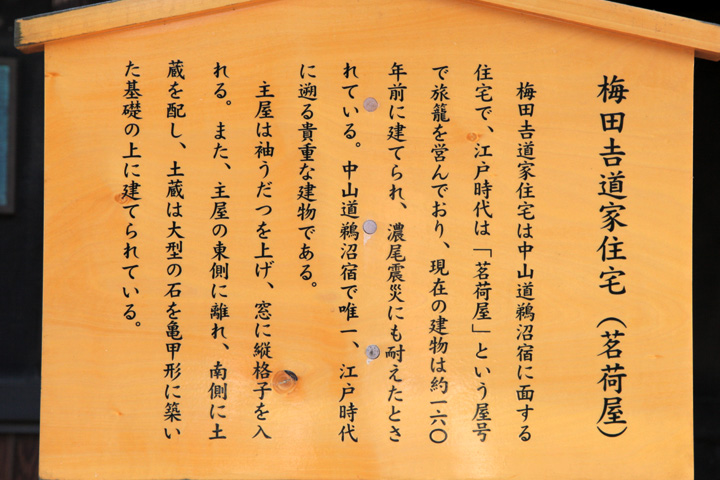 梅田𠮷道家住宅(茗荷屋)
梅田𠮷道家住宅は中山道鵜沼宿に面する
住宅で、江戸時代は「茗荷屋」という屋号
で旅籠を営んでおり、現在の建物は約一六〇
年前に建てられ、濃尾震災にも耐えたとさ
れている。中山道鵜沼宿で唯一、江戸時代
に遡る貴重な建物である。
主屋は袖うだつを上げ、窓に縦格子を入
れる。また、主屋の東側に離れ、南側に土
蔵を配し、土蔵は大型の石を亀甲形に築い
た基礎の上に建てられている。